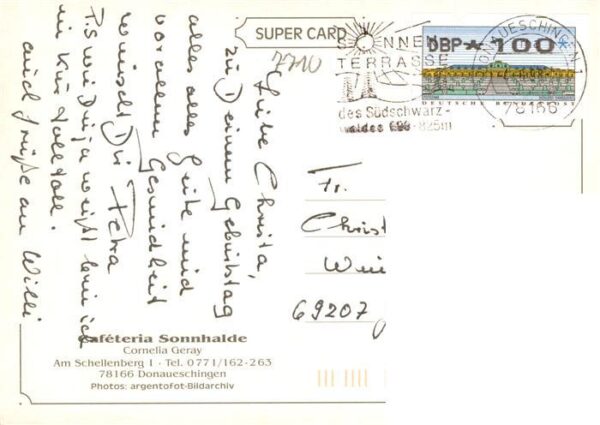 SUPER CARD
7710
SONNEN
TERRASSE
des Südschwarz-
waldes 690-825m
DBP * 100 *
DEUTSCHE BUNDESPOST
DONAUESCHINGEN 1
78166
Liebe Christa,
zu Deinem Geburtstag
alles alles Gute und
vor allem Gesundheit
wünscht Dir Petra
P.S wie Du ja weißt bin ich
in Kur Voll toll.
auch Grüße an Willi
Fr.
Christ
Wei
69207
Cafèteria Sonnhalde
Cornelia Geray
Am Schellenberg 1 · Tel. 0771/162-263
78166 Donaueschingen
Photos: argentofot-Bildarchiv